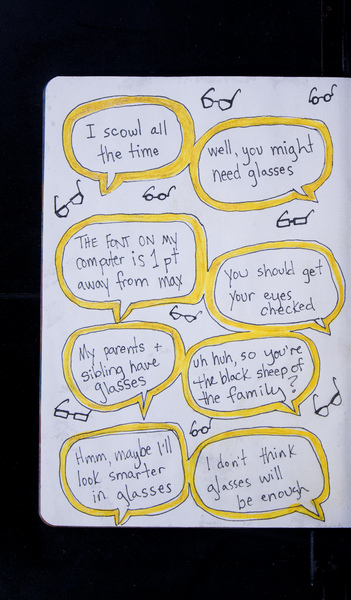 I scowl all
the time
well, you might
need glasses
THE FONT ON MY
computer is 1 pt
away from max
you should get
your eyes
checked
My parents +
sibling have
glasses
uh huh, so you're
the black sheep of
the family?
Hmm, maybe I'll
look smarter
in glasses
I don't think
glasses will
be enough